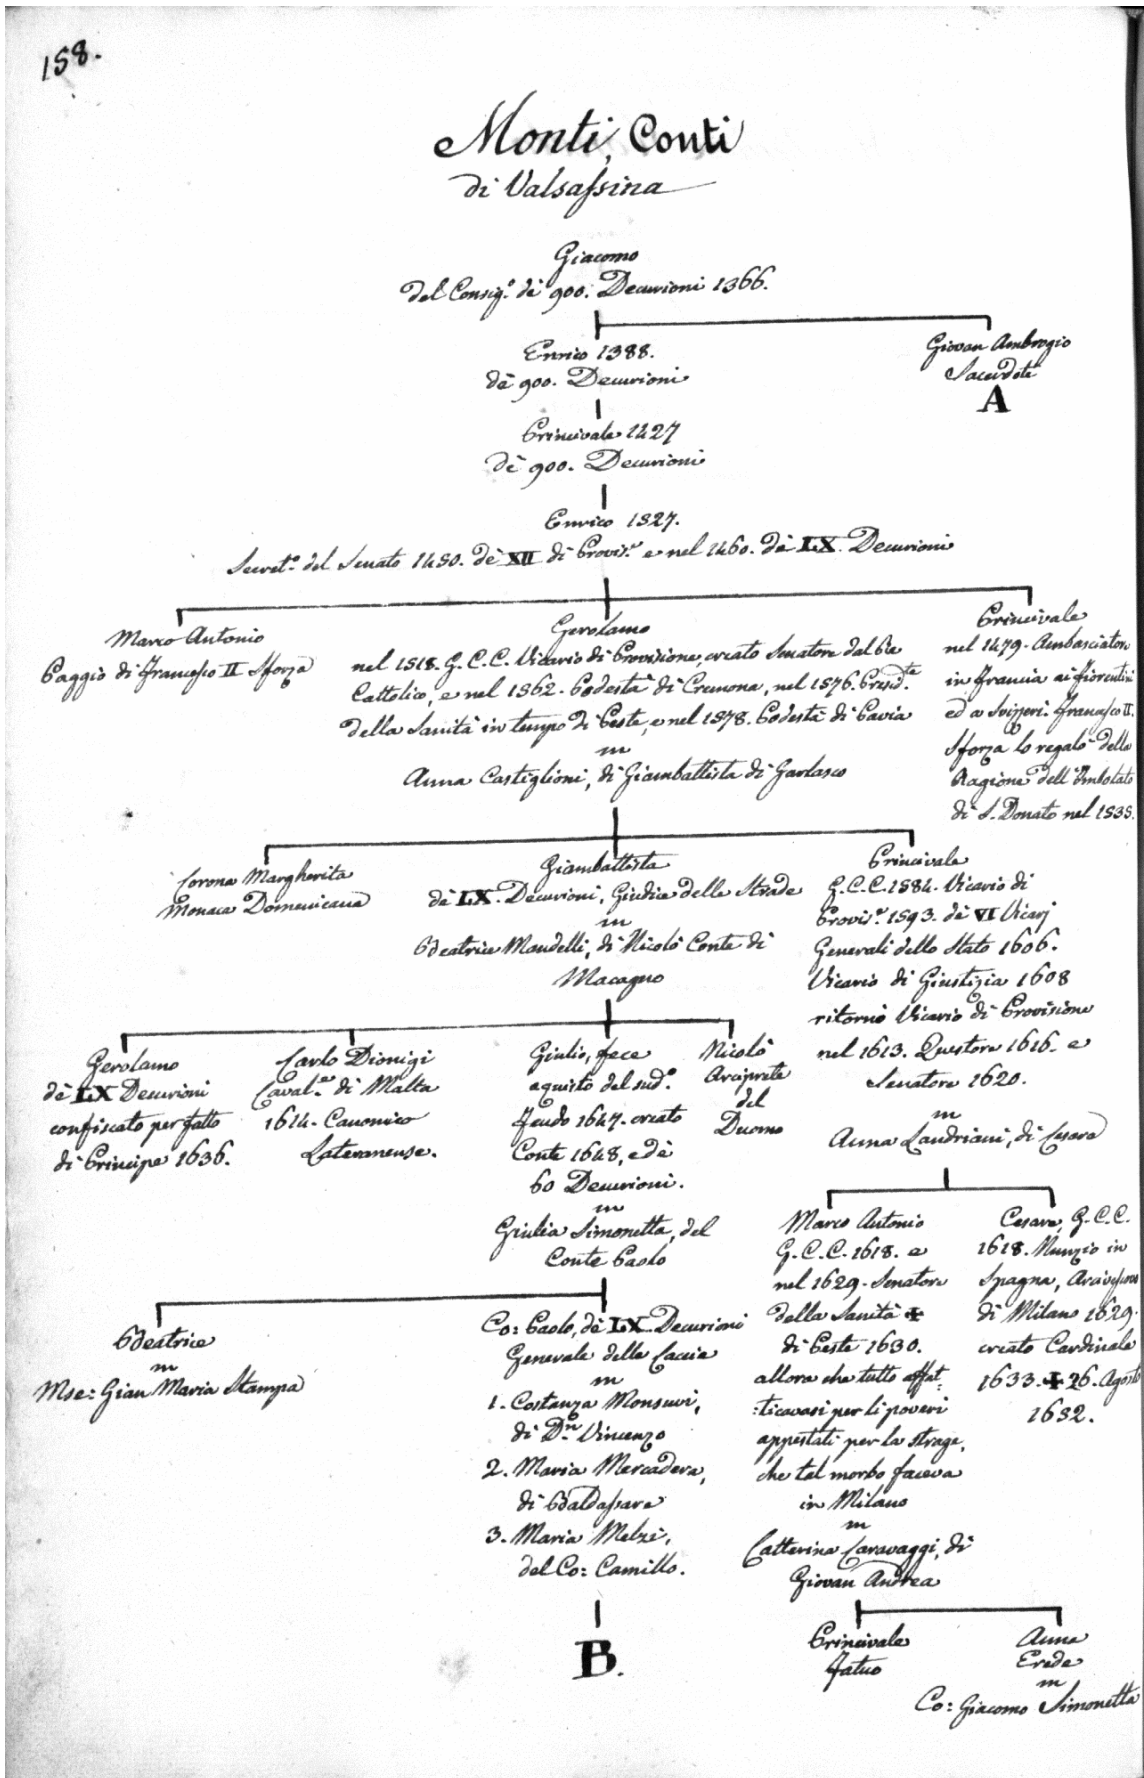 158.
Monti, Conti
di Valsassina
Giacomo
del Consig.o de' 900. Decurioni 1366.
Enrico 1388.
de' 900. Decurioni
Giovan Ambrogio
Sacerdote
A
Princivale 1427
de' 900. Decurioni
Enrico 1527.
Secret.o del Senato 1450. de' XII di Provis.e e nel 1460. de' LX. Decurioni
Marco Antonio
Paggio di Francesco II Sforza
Gerolamo
nel 1518. G. C. C. Vicario di Provisione, creato Senatore dal Re
Cattolico, e nel 1562. Podestà di Cremona, nel 1576. Presid.te
della Sanità in tempo di Peste, e nel 1578. Podestà di Pavia
m
Anna Castiglioni, di Giambattista di Garlasco
Princivale
nel 1479. Ambasciatore
in Francia ai Fiorentini
ed a Svizzeri. Francesco II.
Sforza lo regalò della
Ragione dell'Imbotato
di S. Donato nel 1535.
Corona Margherita
Monaca Domenicana
Giambattista
de' LX. Decurioni, Giudice delle Strade
m
Beatrice Mandelli, di Nicolò Conte di
Macagno
Princivale
G. C. C. 1584. Vicario di
Provis.e 1593. de' VI Vicarj
Generali dello Stato 1606.
Vicario di Giustizia 1608
ritornò Vicario di Provisione
nel 1613. Questore 1616. e
Senatore 1620.
m
Anna Landriani, di Cesare
Gerolamo
de' LX Decurioni
confiscato per fatto
di Principe 1636.
Carlo Dionigi
Caval.re di Malta
1614. Canonico
Lateranense.
Giulio, fece
aquisto del sud.o
Feudo 1647. creato
Conte 1648, e de'
60 Decurioni.
m
Giulia Simonetta, del
Conte Paolo
Nicolò
Arciprete
del
Duomo
Marco Antonio
G. C. C. 1618. e
nel 1629. Senatore
della Sanità ✠
di Peste 1630.
allora che tutto affat:
:ticavasi per li poveri
appestati per la strage,
che tal morbo faceva
in Milano
m
Catterina Caravaggi, di
Giovan Andrea
Cesare, G. C. C.
1618. Nunzio in
Spagna, Arcivescovo
di Milano 1629.
creato Cardinale
1633. ✠ 26. Agosto
1652.
Beatrice
m
Mse: Gian Maria Stampa
Co: Paolo, de' LX. Decurioni
Generale delle Caccie
m
1. Costanza Monsuri,
di D.n Vincenzo
2. Maria Mercadera,
di Baldassare
3. Maria Melzi,
del Co: Camillo.
B.
Princivale
Fatuo
Anna
Erede
m
Co: Giacomo Simonetta